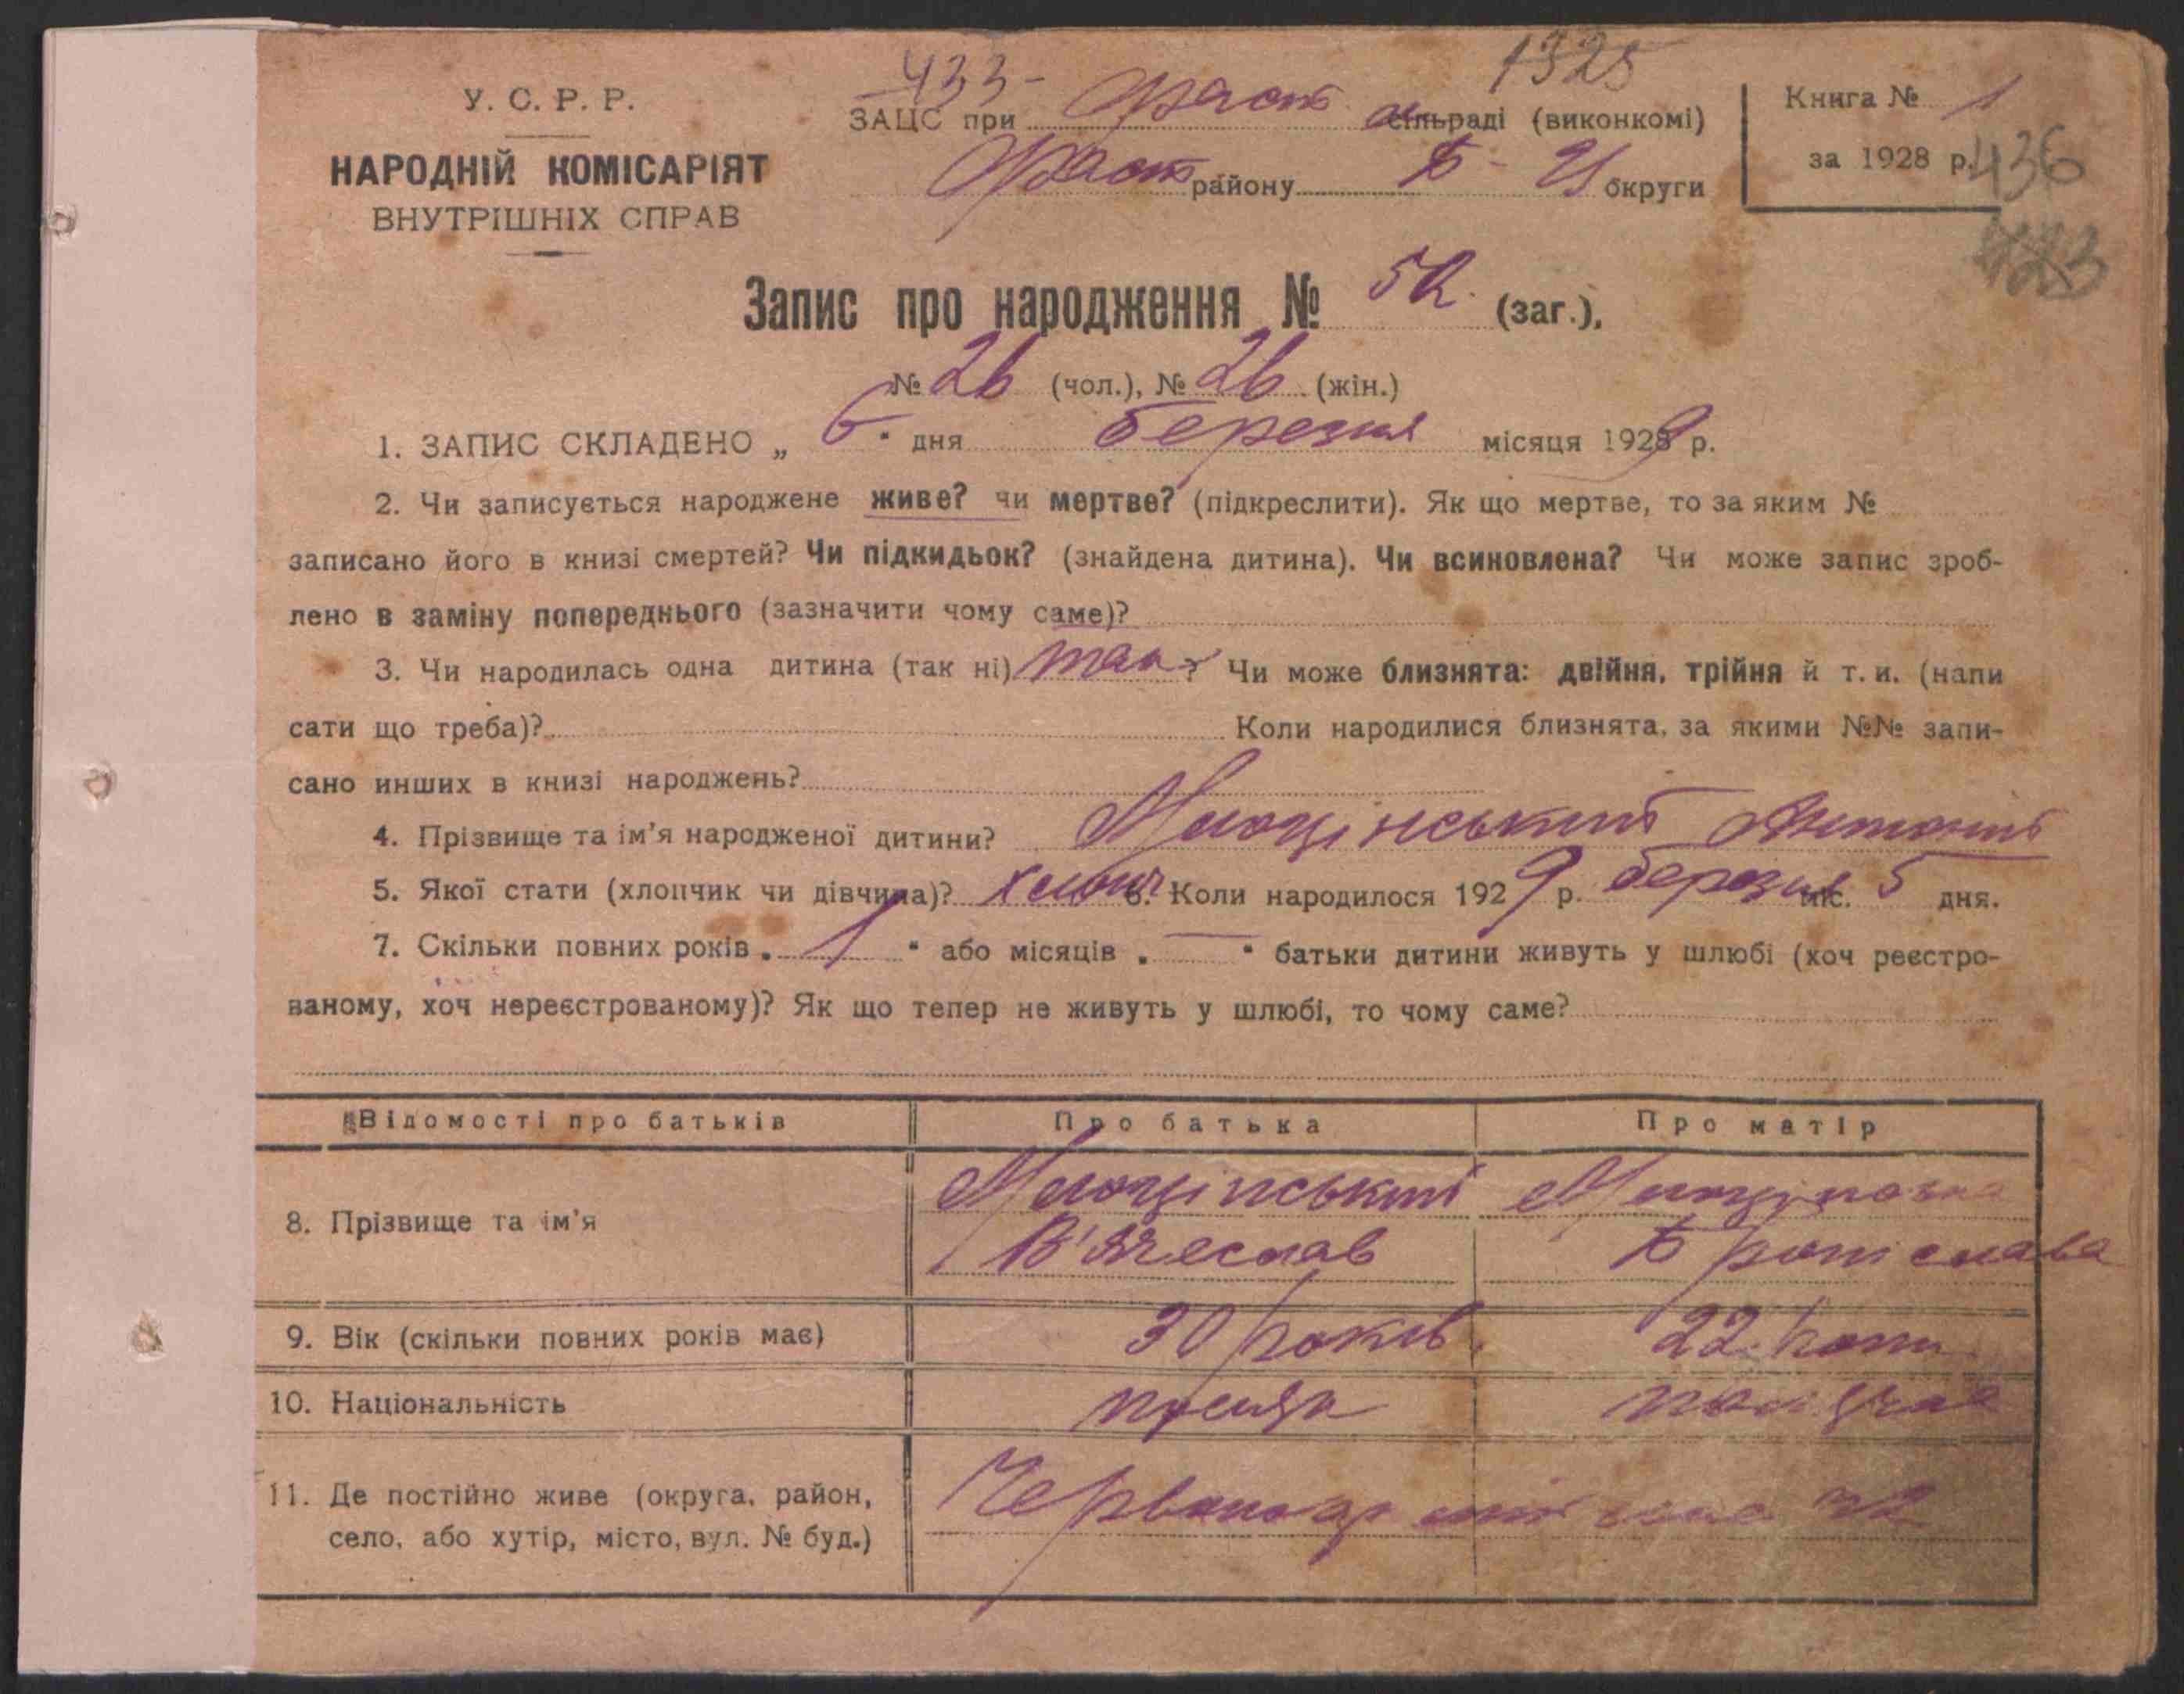 433- 1328
У. С. Р. Р.
ЗАЦС при Фаст сільраді (виконкомі)
Книга № 1
НАРОДНІЙ КОМІСАРІЯТ
Фаст району Б - Ц округи
за 1928 р. 436
ВНУТРІШНІХ СПРАВ
423
Запис про народження № 52 (заг.),
№ 26 (чол.), № 26 (жін.)
1. ЗАПИС СКЛАДЕНО „ 6 " дня березня місяця 1929 р.
2. Чи записується народжене живе? чи мертве? (підкреслити). Як що мертве, то за яким №
записано його в книзі смертей? Чи підкидьок? (знайдена дитина). Чи всиновлена? Чи може запис зроб-
лено в заміну попереднього (зазначити чому саме)?
3. Чи народилась одна дитина (так ні) так ? Чи може близнята: двійня, трійня й т. и. (напи
сати що треба)? Коли народилися близнята, за якими №№ запи-
сано инших в книзі народжень?
4. Прізвище та ім'я народженої дитини? Млоцінський Антоній
5. Якої стати (хлопчик чи дівчина)? хлопч 6. Коли народилося 1929 р. березня міс. 5 дня.
7. Скільки повних років „ 1 " або місяців „ — " батьки дитини живуть у шлюбі (хоч реєстро-
ваному, хоч нереєстрованому)? Як що тепер не живуть у шлюбі, то чому саме?
Відомості про батьків Про батька Про матір
8. Прізвище та ім'я
Млоцінський
В'ячеслав
Броніслава
9. Вік (скільки повних років має) 30 років 22 роки
10. Національність поляк полячка
11. Де постійно живе (округа, район,
село, або хутір, місто, вул. № буд.)